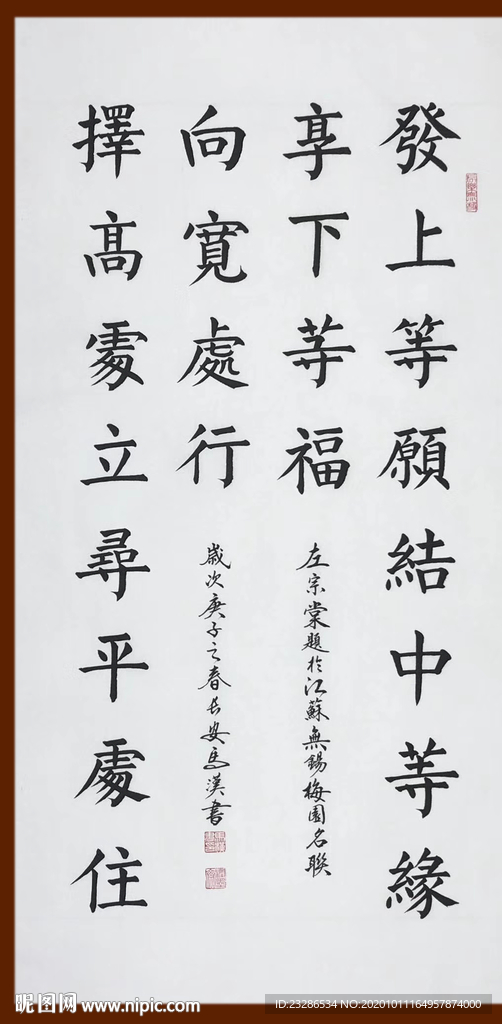 發上等願結中等緣
享下等福
擇高處立尋平處住
向寬處行
左宗棠題於江蘇無錫梅園名聯
歲次庚子之春長安馬漢書
昵图网 www.nipic.com
ID:23286534 NO:20201011164957874000